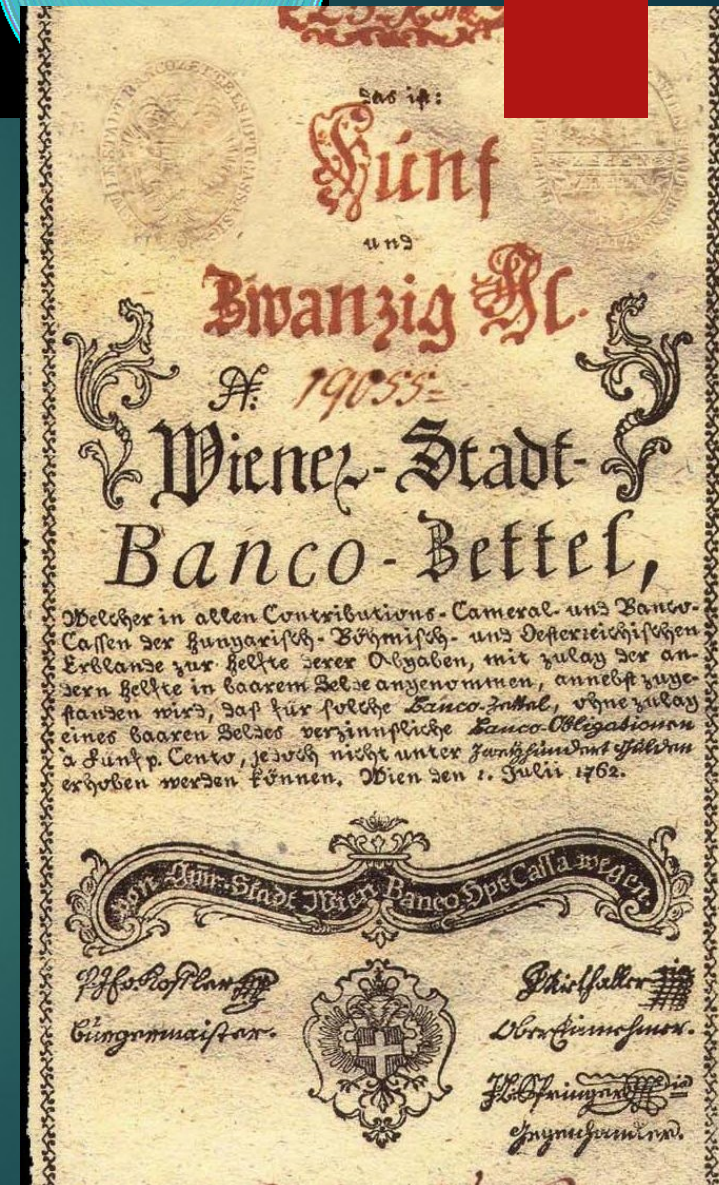 das ist:
Fünf
und
Zwanzig Fl.
N: 19055=
Wiener-Stadt-
Banco-Zettel,
Welcher in allen Contributions-Cameral- und Banco-
Cassen der Hungarisch-Böhmisch- und Oesterreichischen
Erblande zur Helfte derer Abgaben, mit zulag der an-
dern Helfte in baarem Gelde angenommen, annebst zuge-
standen wird, daß für solche Banco-Zettel, ohne zulag
eines baaren Geldes verzinnßliche Banco-Obligationen
à Fünf p. Cento, jedoch nicht unter Zweyhundert Gulden
erhoben werden können. Wien den 1. Julii 1762.
von Stadt Wien Banco Cassa wegen.
Burgermaister.
OberEinnehmer.